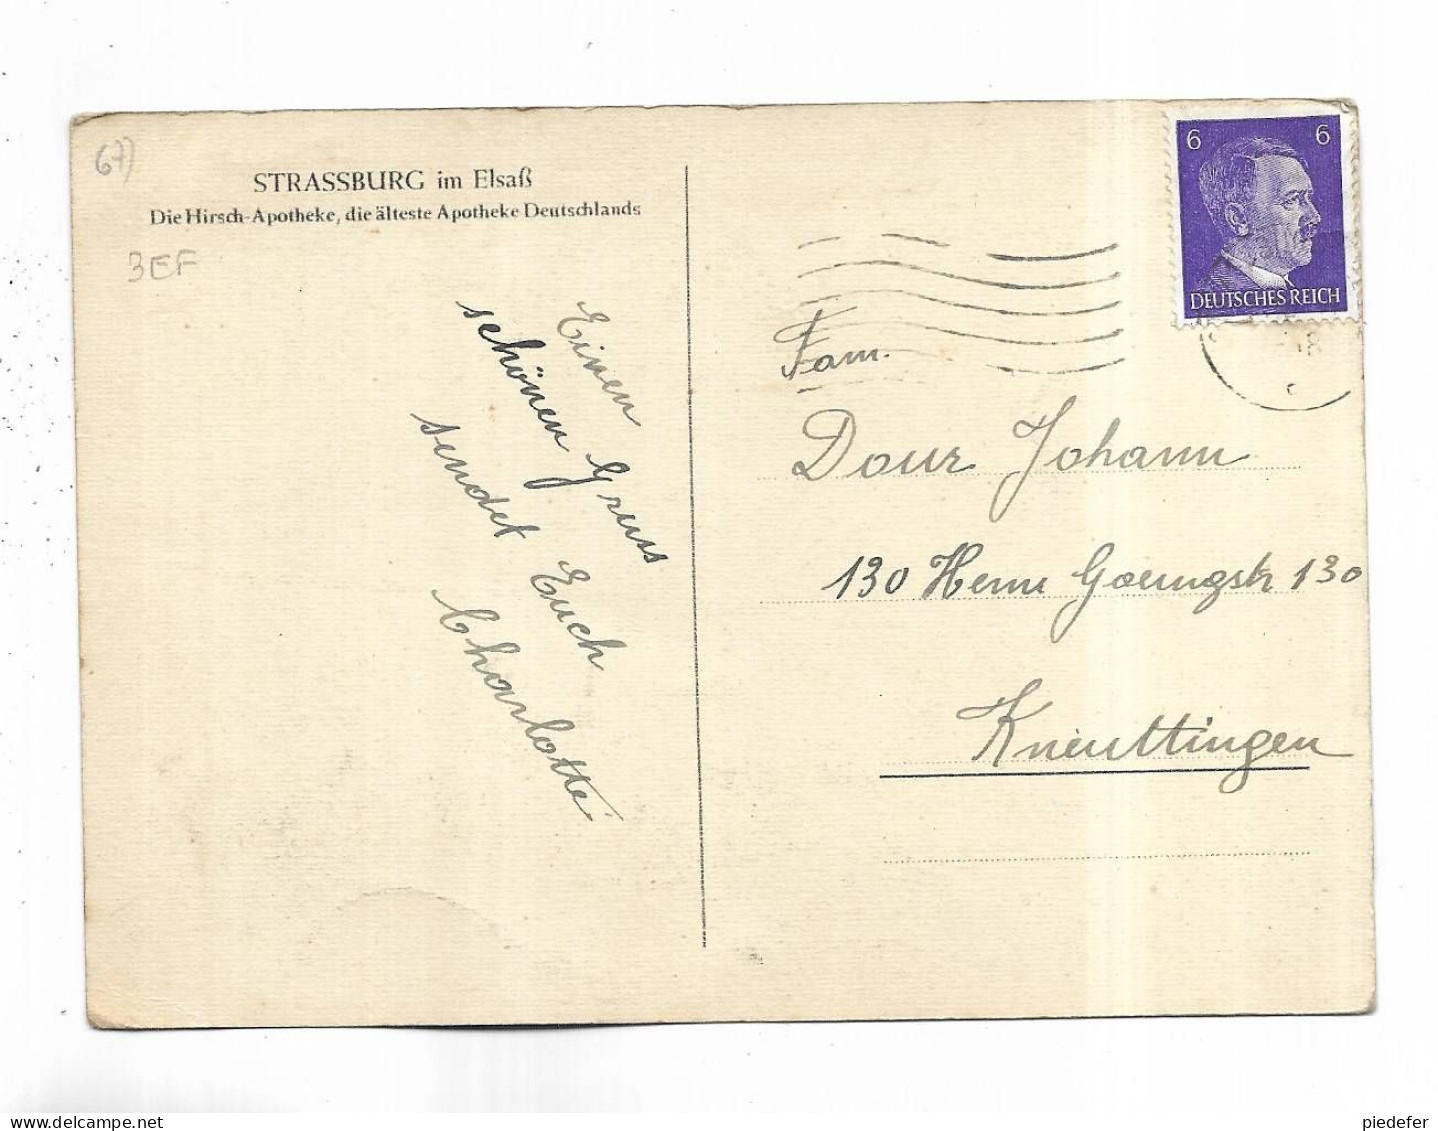 67)
STRASSBURG im Elsaß
Die Hirsch-Apotheke, die älteste Apotheke Deutschlands
3EF
Einen
schönen Gruss
sendet Euch
Charlotte
6 6
DEUTSCHES REICH
18
Fam.
Dour Johann
130 Herm Goeringstr 130
Kneuttingen
delcampe.net
piedefer